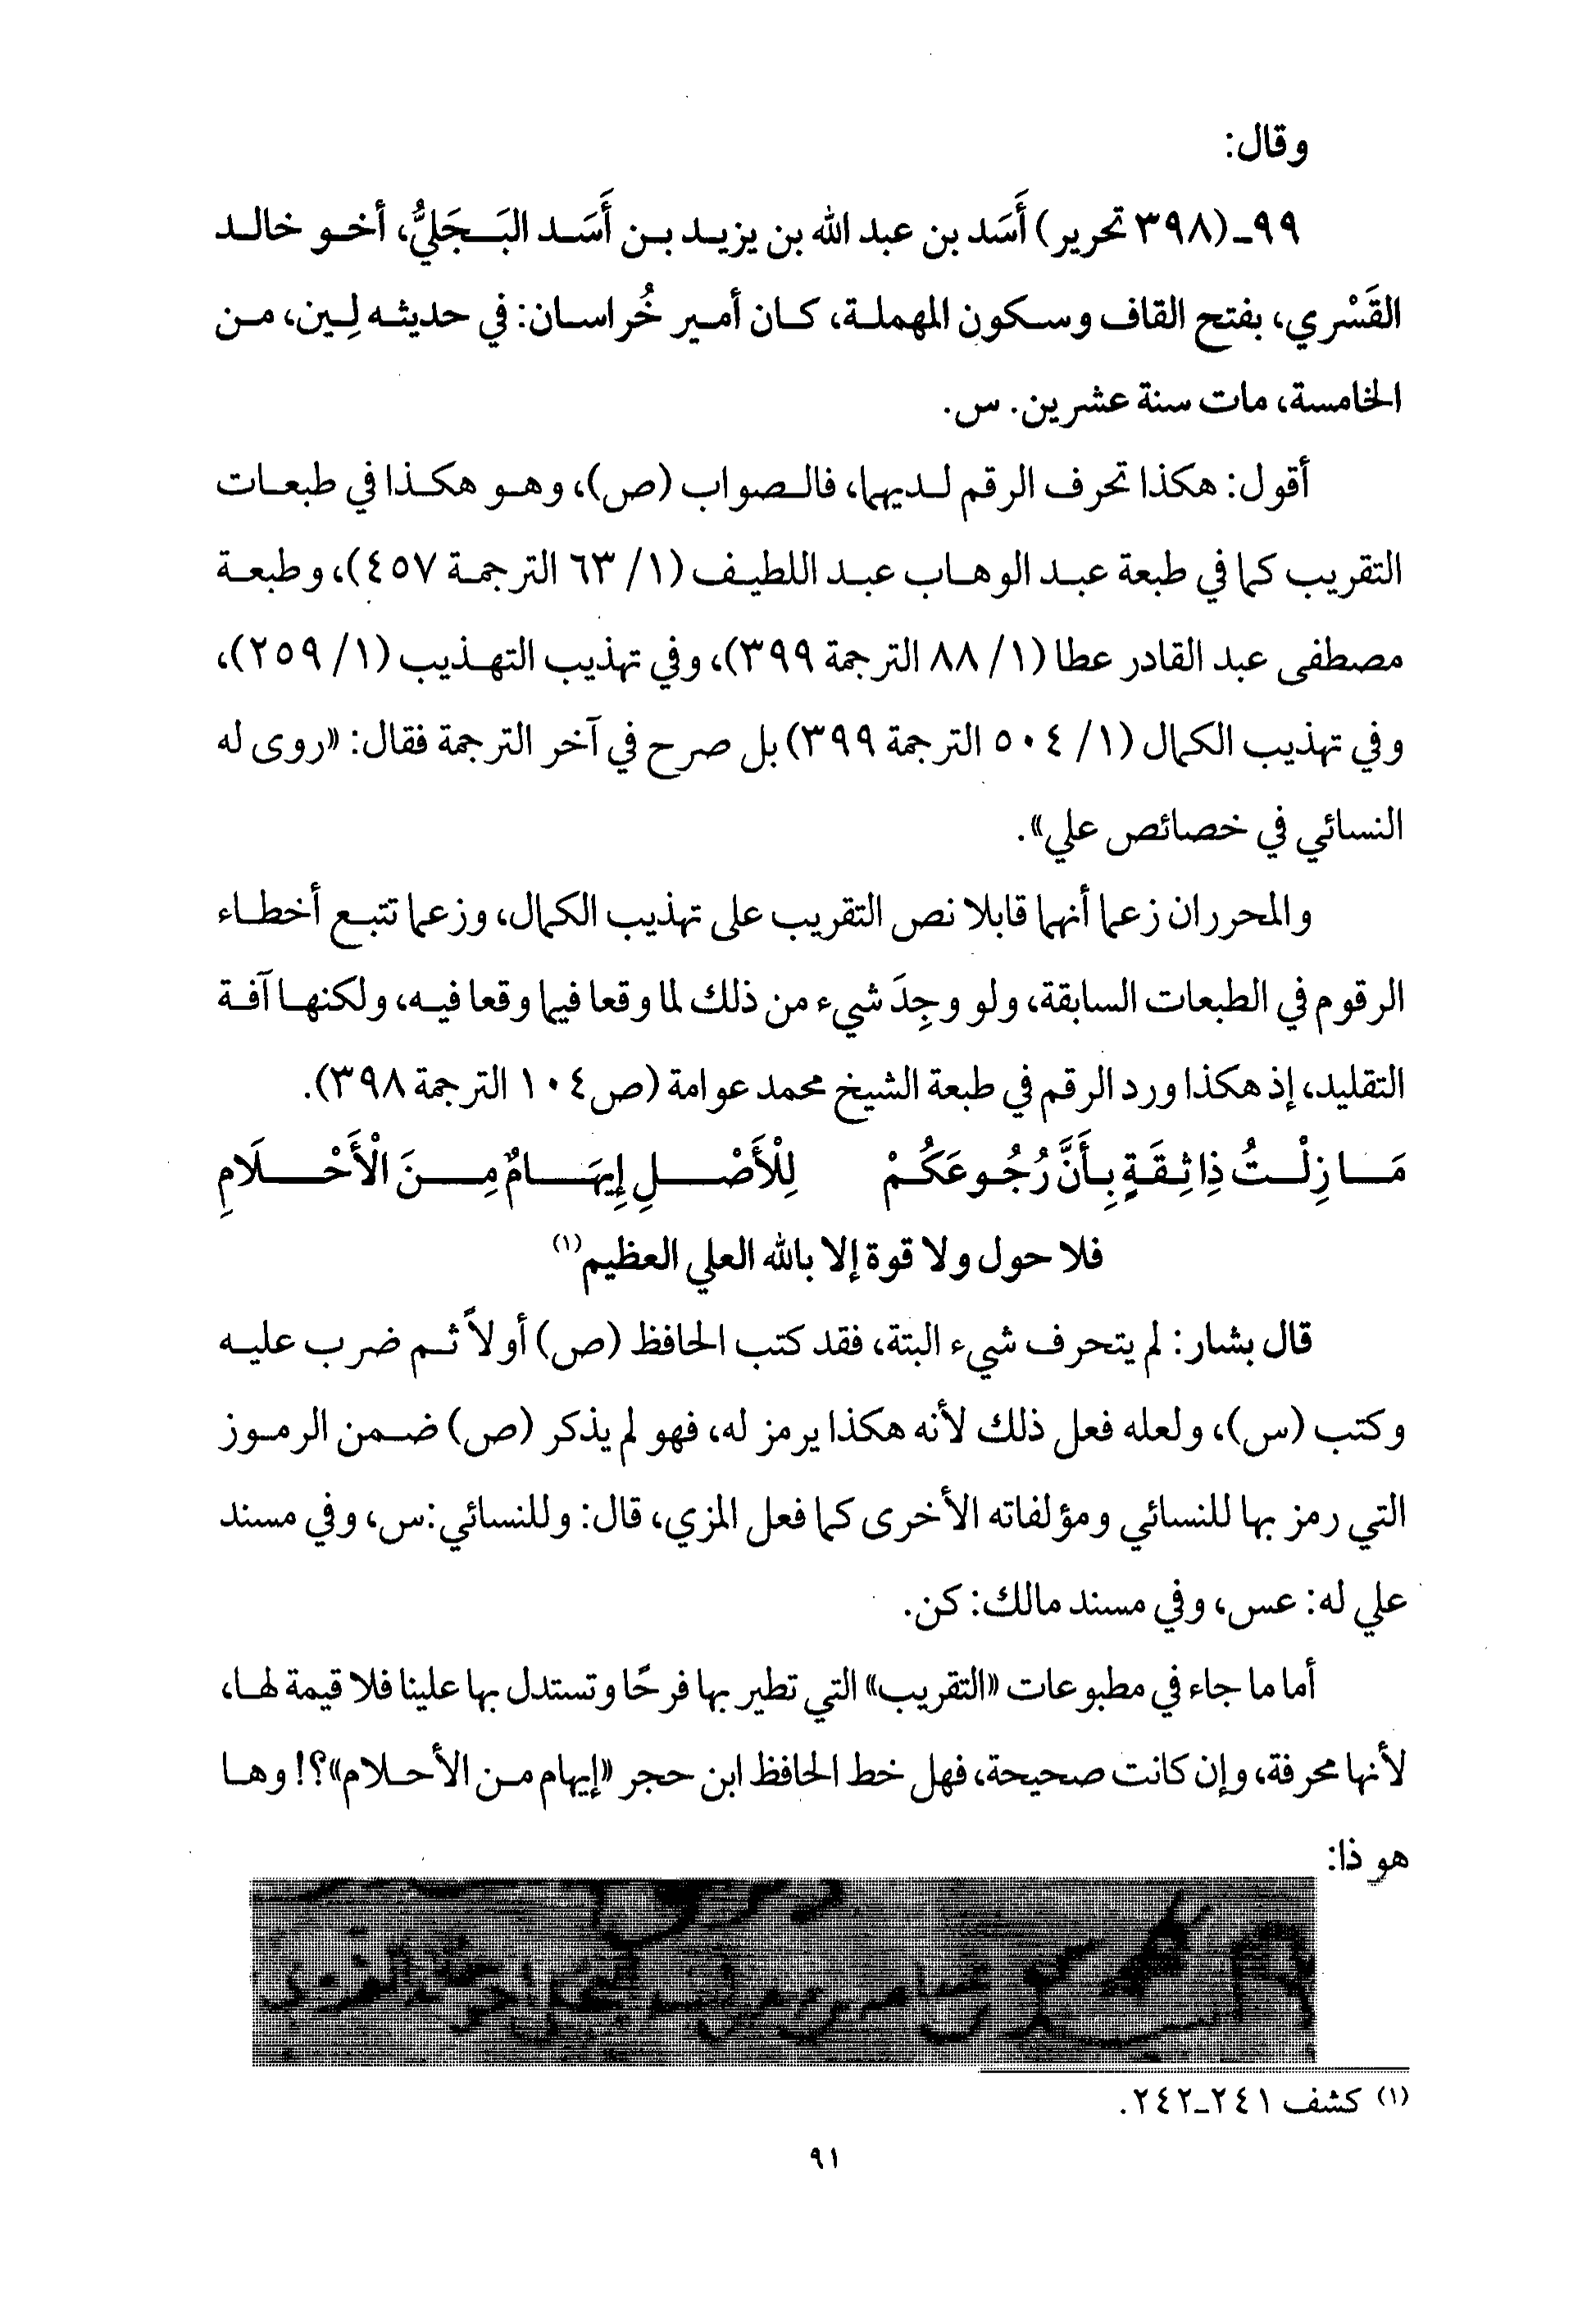 وقال:
٩٩ـ (٣٩٨ تحرير) أَسَد بن عبد الله بن يزيد بن أَسَد البَجَليُّ، أخو خالد
القَسْري، بفتح القاف وسكون المهملة، كان أمير خُراسان: في حديثه لِين، من
الخامسة، مات سنة عشرين. س.
أقول: هكذا تحرف الرقم لديهما، فالصواب (ص)، وهو هكذا في طبعات
التقريب كما في طبعة عبد الوهاب عبد اللطيف (١/ ٦٣ الترجمة ٤٥٧)، وطبعة
مصطفى عبد القادر عطا (١/ ٨٨ الترجمة ٣٩٩)، وفي تهذيب التهذيب (١/ ٢٥٩)،
وفي تهذيب الكمال (١/ ٥٠٤ الترجمة ٣٩٩) بل صرح في آخر الترجمة فقال: «روى له
النسائي في خصائص علي».
والمحرران زعما أنهما قابلا نص التقريب على تهذيب الكمال، وزعما تتبع أخطاء
الرقوم في الطبعات السابقة، ولو وجِدَ شيء من ذلك لما وقعا فيما وقعا فيه، ولكنها آفة
التقليد، إذ هكذا ورد الرقم في طبعة الشيخ محمد عوامة (ص١٠٤ الترجمة ٣٩٨).
مَا زِلْتُ ذِا ثِقَةٍ بِأَنَّ رُجُوعَكُمْ لِلْأَصْلِ إِيهَامٌ مِنَ الْأَحْلَامِ
فلا حول ولا قوة إلا بالله العلي العظيم(١)
قال بشار: لم يتحرف شيء البتة، فقد كتب الحافظ (ص) أولاً ثم ضرب عليه
وكتب (س)، ولعله فعل ذلك لأنه هكذا يرمز له، فهو لم يذكر (ص) ضمن الرموز
التي رمز بها للنسائي ومؤلفاته الأخرى كما فعل المزي، قال: وللنسائي:س، وفي مسند
علي له: عس، وفي مسند مالك: كن.
أما ما جاء في مطبوعات «التقريب» التي تطير بها فرحًا وتستدل بها علينا فلا قيمة لها،
لأنها محرفة، وإن كانت صحيحة، فهل خط الحافظ ابن حجر «إيهام من الأحلام»؟! وها
هو ذا:
(١) كشف ٢٤١ـ٢٤٢.
٩١